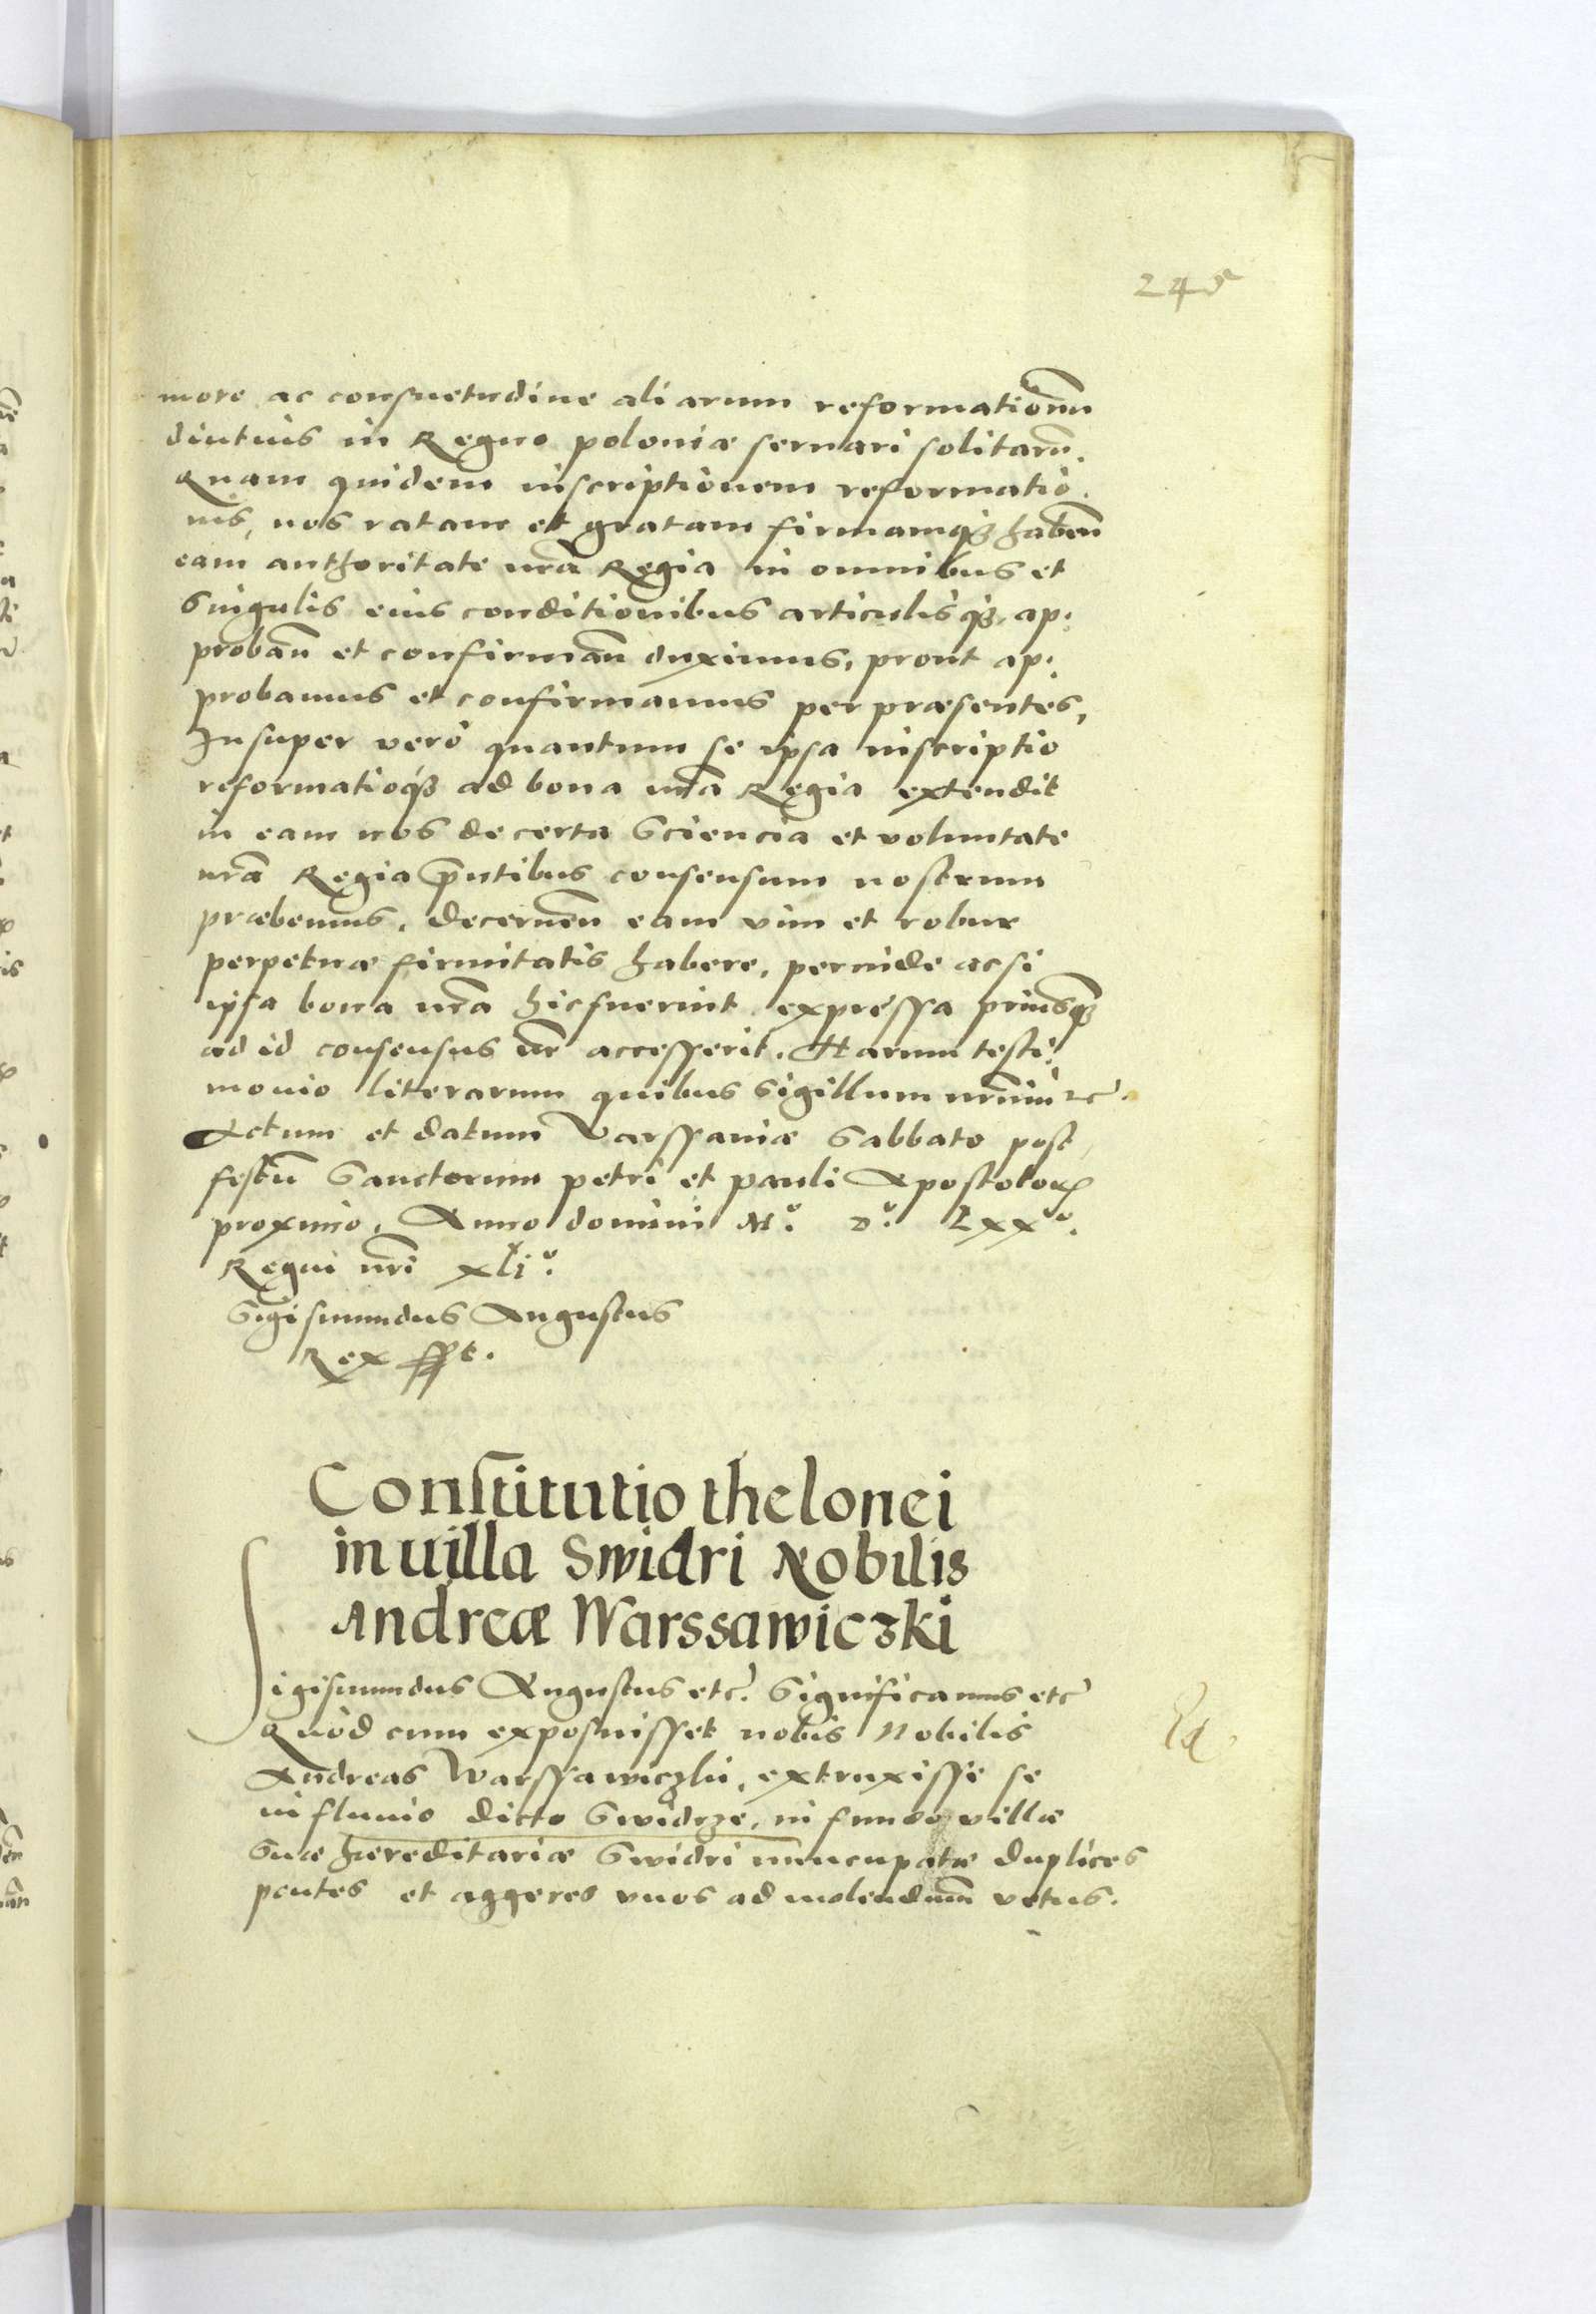 245
more ac consuetudine aliarum reformationũ
diutius in Regno poloniæ seruari solitarũ.
Quam quidem inscriptionem reformatio.
nis, nos ratam et gratam firmamqȝ habeñ
eam authoritate nrã Regia in omnibus et
Singulis eius conditionibus articulisqȝ, ap:
probañ et confirmañ duximus, prout ap:
probamus et confirmamus per præsentes,
Insuper verò quantum se ipsa inscriptio
reformatioqȝ ad bona nrã Regia extendit
in eam nos de certa Sciencia et voluntate
nrã Regia p̃ntibus consensum nostrum
præbemus, decerneñ eam vim et robur
perpetuæ firmitatis habere, perinde ac si
ipsa bona nrã hic fuerint expressa priusqȝ
ad id consensus nr̃ accesserit. Harum testi:
monio literarum quibus Sigillum nrũm etc.
Actum et datum Varssauiæ Sabbato post
festũ Sanctorum petri et pauli Apostolorꝝ
proximo, Anno domini Mº. Dº. Lxxº.
Regni nrĩ xliº.
Sigismundus Augustus
Rex sst.
Constitutio thelonei
in uilla Swidri Nobilis
Andreæ Warssawiczki
Sigismundus Augustus etc. Significamus etc
Quod cum exposuisset nobis Nobilis
Andreas Warssawiczki, extruxisse se
in fluuio dicto Swidrze, in fundo villæ
Suæ hæreditariæ Swidri nuncupatæ duplices
pontes et aggeres vnos ad molendinũm vetus.